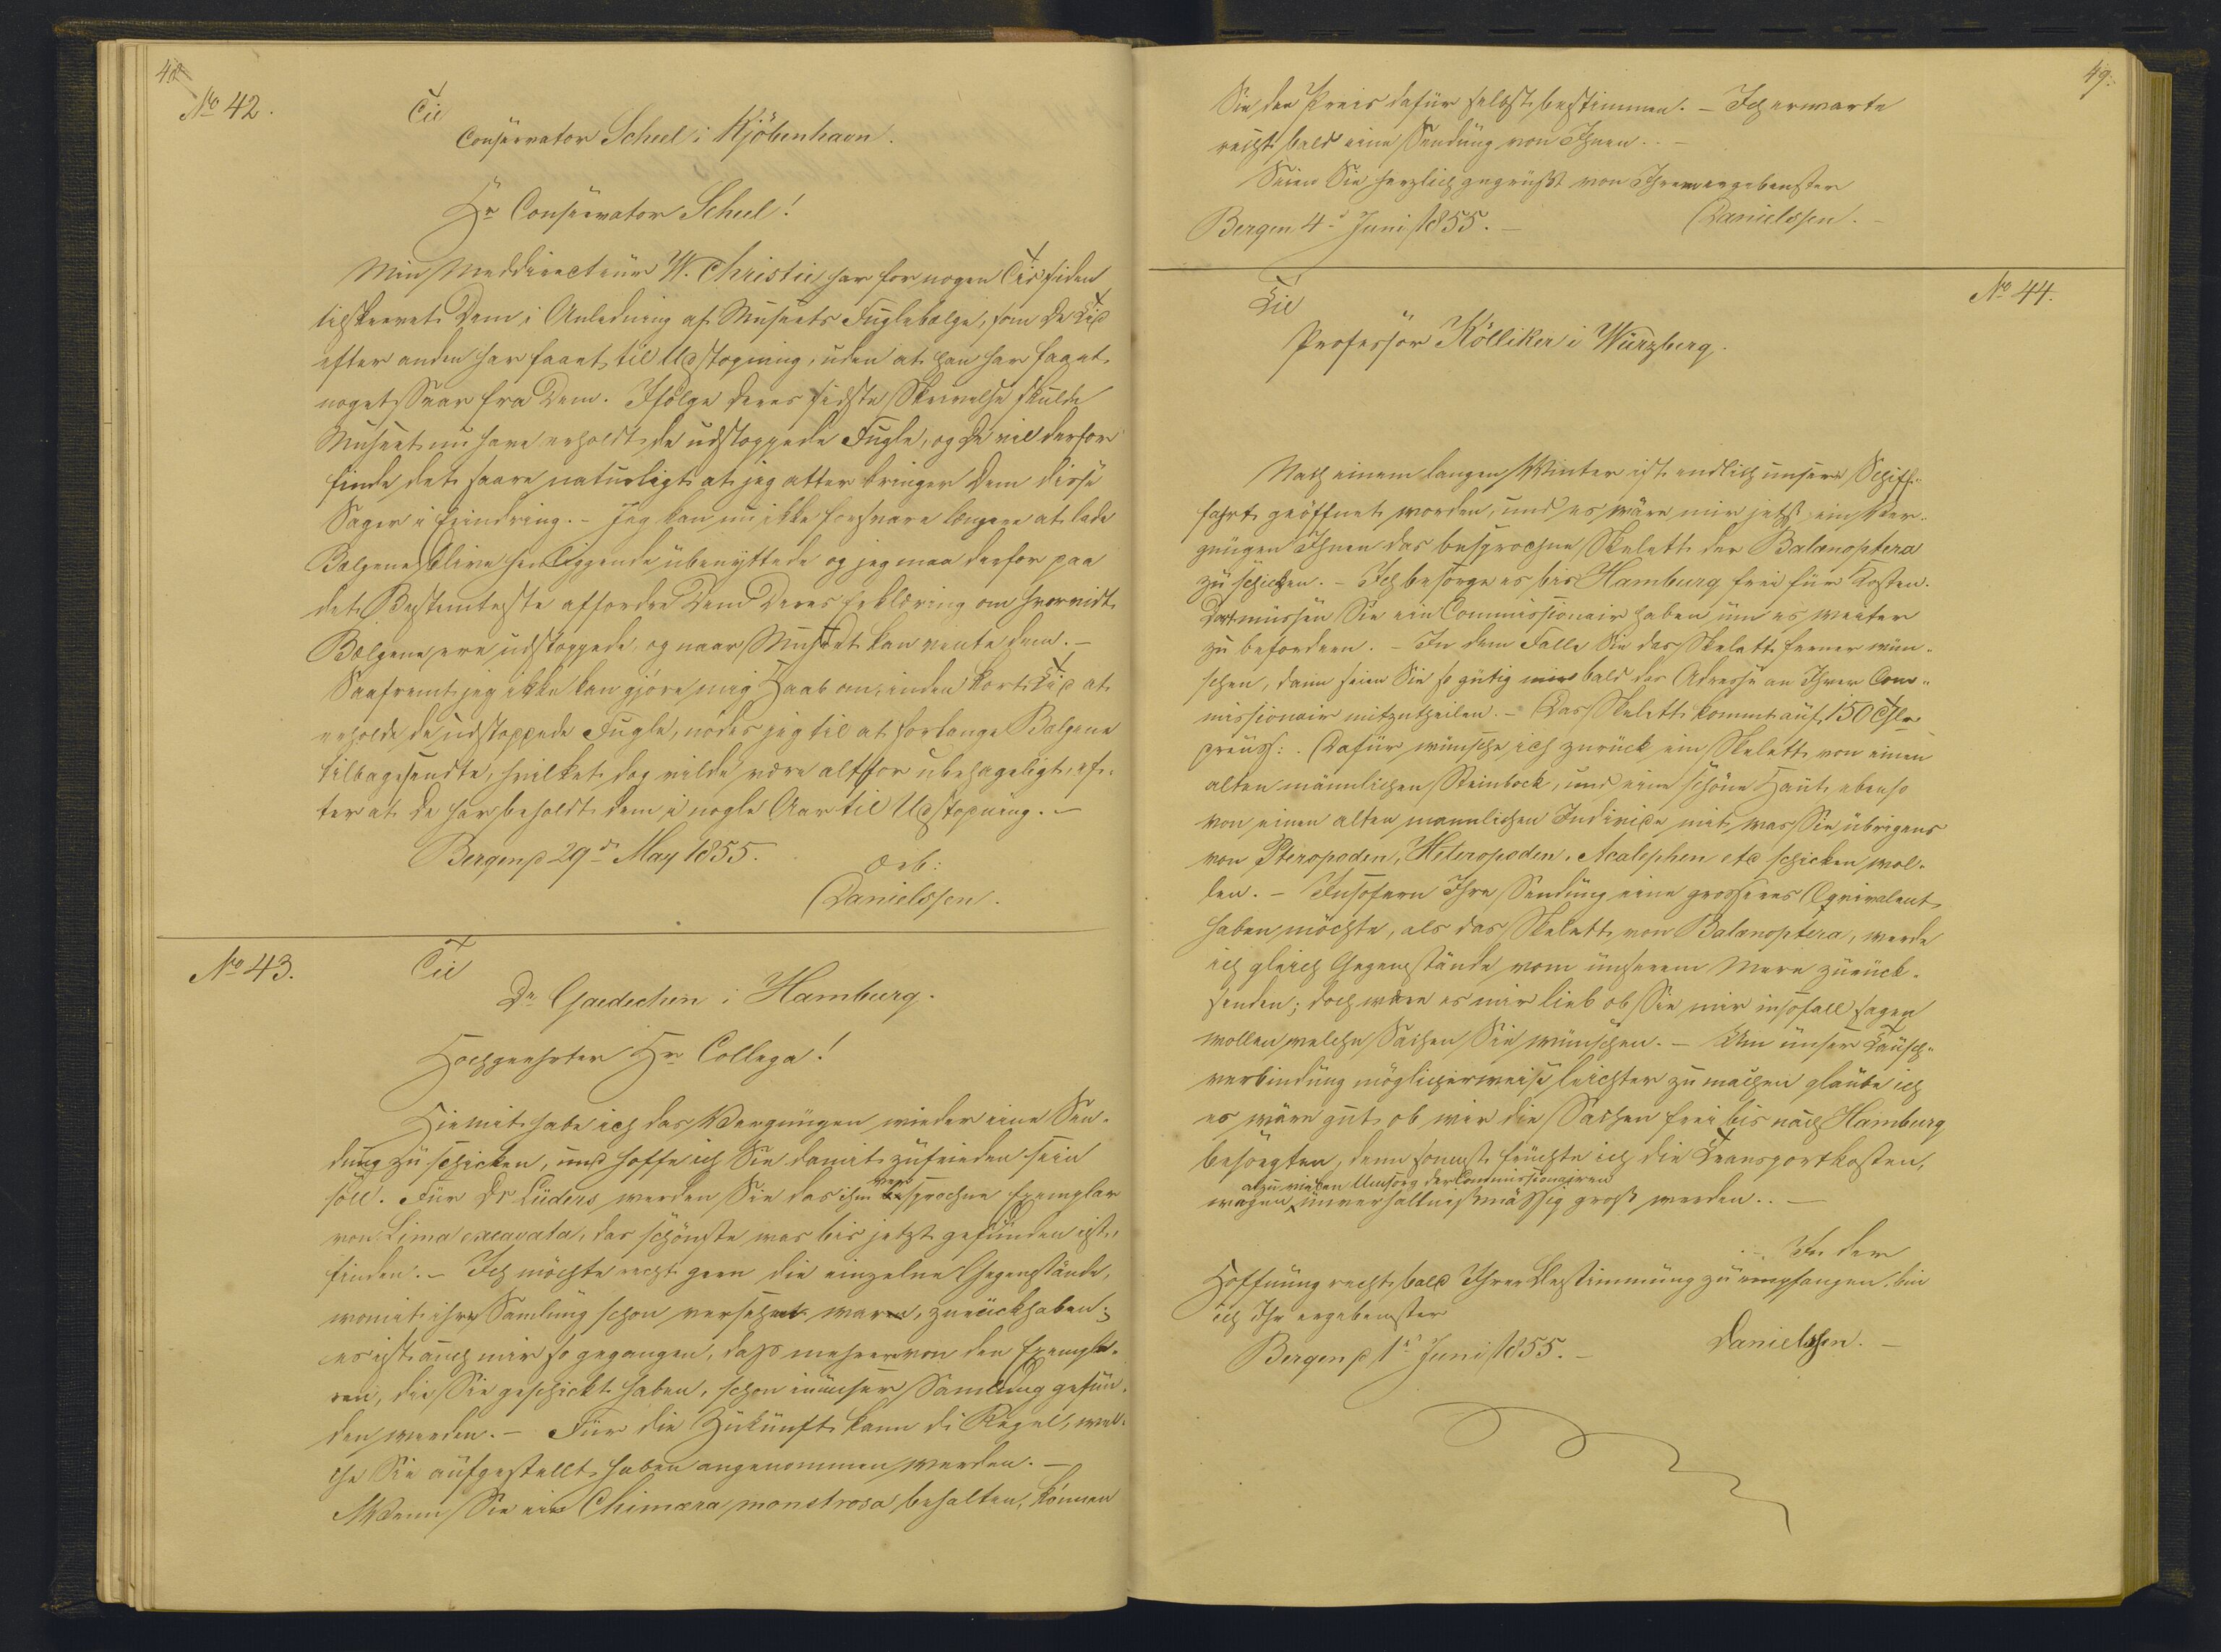 48
No 42.
Til
Conservator Scheel i Kjöbenhavn.
Hr Conservator Scheel!
Min Meddirecteur W. Christie har for nogen Tid siden
tilskrevet Dem i Anledning af Museets Fuglebælge, som De Tid
efter anden har faaet til Udstopning, uden at han har faaet
noget Svar fra Dem. Ifölge Deres sidste Skrivelse skulde
Museet nu have erholdt de udstoppede Fugle, og De vil derfor
finde det saare naturligt at jeg atter bringer Dem disse
Sager i Erindring. – Jeg kan nu ikke forsvare længere at lade
Bælgene blive henliggende ubenyttede og jeg maa derfor paa
det Bestemteste affordre Dem Deres Erklæring om hvorvidt
Bælgene ere udstoppede, og naar Museet kan vente dem. –
Saafremt jeg ikke kan gjøre mig Haab om, inden kort Tid at
erholde de udstoppede Fugle, nödes jeg til at forlange Bælgene
tilbagesendte, hvilket dog vilde være altfor ubehageligt, ef-
ter at De har beholdt dem i nogle Aar til Udstopning. –
Bergen d 29d May 1855.
Ærb:
Danielssen.
No 43.
Til
Dr Gaedechen i Hamburg.
Hochgeehrter Hr Collega!
Hiemit habe ich das Vergnügen wieder eine Sen-
dung zu schicken, und hoffe ich Sie damit zufrieden sein
soll. Für Dr Lüders werden Sie das ihm versprochne Exemplar
von Lima excavata, das schönste was bis jetzt gefunden ist,
finden. – Ich möchte recht gern die einzelne Gegenstände,
womit ihre Samlung schon versehen war, zurückhaben;
es ist auch mir so gegangen, dass mehrere von den Exempla-
ren, die Sie geschickt haben, schon in unser Samlung gefun-
den werden. – Für die Zukunft kann di Regel, wel-
che Sie aufgestellt haben angenommen werden. –
Wenn Sie ein Chimæra monstrosa behalten, können
49.
Sie den Preis dafür selbst bestimmen. – Ich erwarte
recht bald eine Sendung von Ihnen. . –
Seien Sie herzlich gegrüsst von Ihrem ergebenster
Bergen 4d Juni 1855. –
Danielssen. –
No 44.
Til
Professor Kölliker i Würzberg.
Nach einem langen Winter ist endlich unsere Schiff-
fahrt geöffnet worden, und es wäre mir jetzt ein Ver-
gnügen Ihnen das besprochne Skelett der Balænoptera
zu schicken. – Ich besorge es bis Hamburg frei für Kosten.
Dort müssen Sie ein Commissionair haben um es weiter
zu befordern. – In dem Falle Sie das Skelett ferner wün-
schen, dann seien Sie so gütig mir bald das Adresse an Ihrer Com-
missionair mitzutheilen. – Das Skelett kommt auf 150 Thlr
preuss: . Dafür wünsche ich zurück ein Skelett von einen
alten männlichen Steinbock, und eine schöne Haut ebenso
von einen alten mannlichen Individe mit was Sie übrigens
von Pteropoden, Heteropoden, Acalephen etc schicken wol-
len. – Insofern Ihre Sendung eine grosseres Eqvivalent
haben möchte, als das Skelett von Balænoptera, werde
ich gleich Gegenstände vom unserem Mere zurück-
senden; doch wäre es mir lieb ob Sie mir insofall sagen
wollen welche Sachen Sie wünschen. – Um unser Tausch-
verbindung möglicherweise leichter zu machen glaube ich
es wäre gut, ob wir die Sachen frei bis nach Hamburg
besorgten, denn sonnst früchte ich die Transportkosten,
alzu vielen Umsorg der Commissionairen
wegen unverhaltnissmässig gross werden. . –
– In der
Hoffnung recht bald Ihrer Bestimmung zu empfangen, bin
ich Ihr ergebenster
Bergen d 1d Juni 1855. –
Danielssen. –